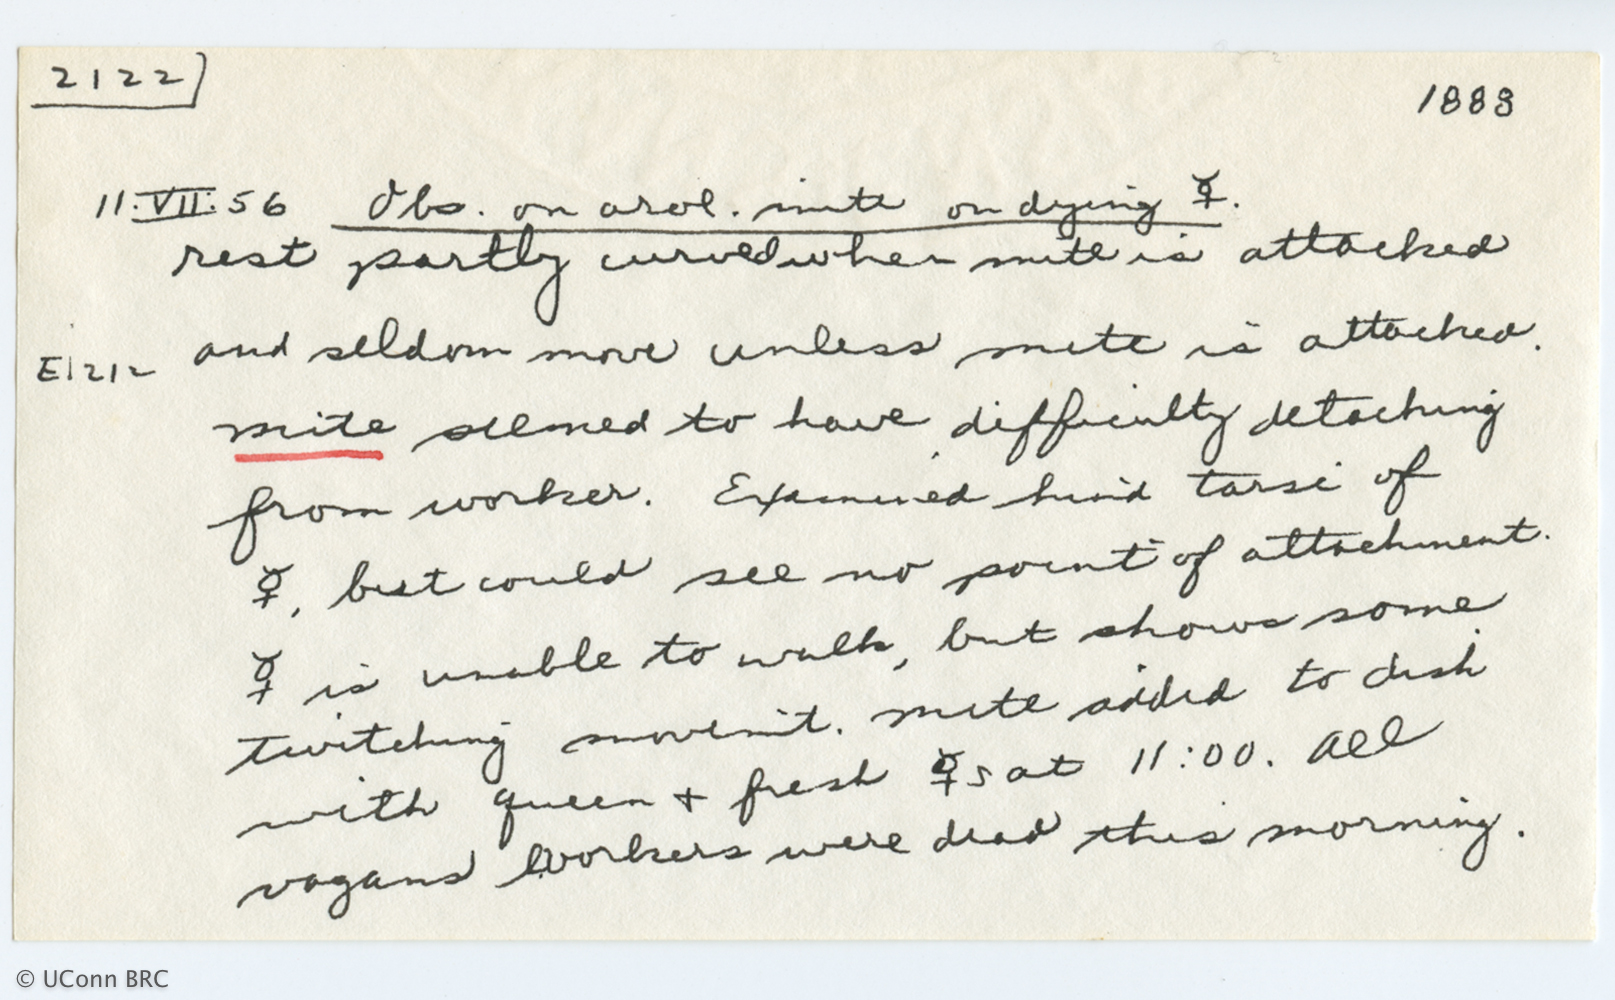 2122
1883
11.VII.56 Obs. on arol. mite on dying ☿.
rest partly curved when mite is attached
E1212 and seldom move unless mite is attached.
mite seemed to have difficulty detaching
from worker. Examined hind tarsi of
☿, but could see no point of attachment.
☿ is unable to walk, but shows some
twitching movem't. Mite added to dish
with queen + fresh ☿s at 11:00. All
vagans workers were dead this morning.
© UConn BRC